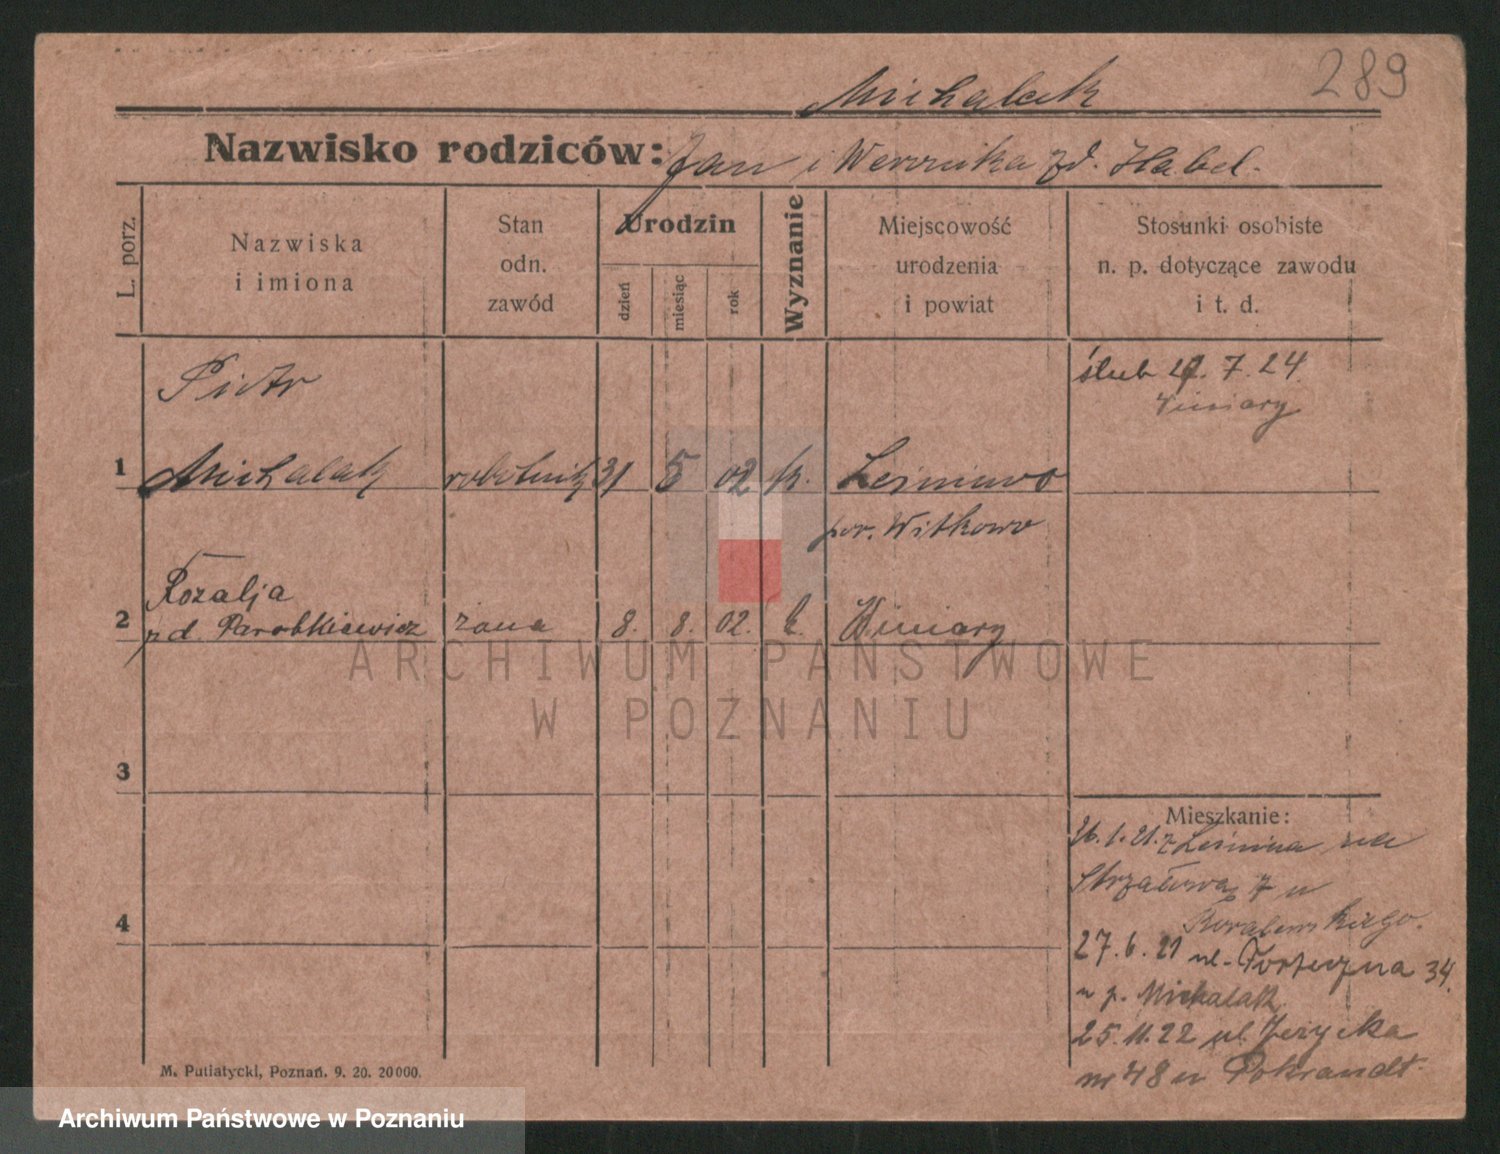 289
Michalak
Nazwisko rodziców: Jan i Weronika zd. Habel.
L. porz.
Nazwiska
i imiona
Stan
odn.
zawód
Urodzin
dzień
miesiąc
rok
Wyznanie
Miejscowość
urodzenia
i powiat
Stosunki osobiste
n. p. dotyczące zawodu
i t. d.
Piotr
ślub 27. 7. 24
Winiary
1 Michalak robotnik 31 5 02 k. Leśniewo
pow. Witkowo
Rozalja
2 zd. Parobkiewicz żona 8. 8. 02. k. Winiary
ARCHIWUM PAŃSTWOWE
W POZNANIU
3
Mieszkanie:
26.1.21. z Leśniewa na
Strzałowa 7 u
4
Kowalewskiego.
27.6.21 ul. Forteczna 34.
u p. Michalak
25.11.22 ul. Jeżycka
nr 48 u Pokrandt.
M. Putiatycki, Poznań. 9. 20. 20000.
Archiwum Państwowe w Poznaniu